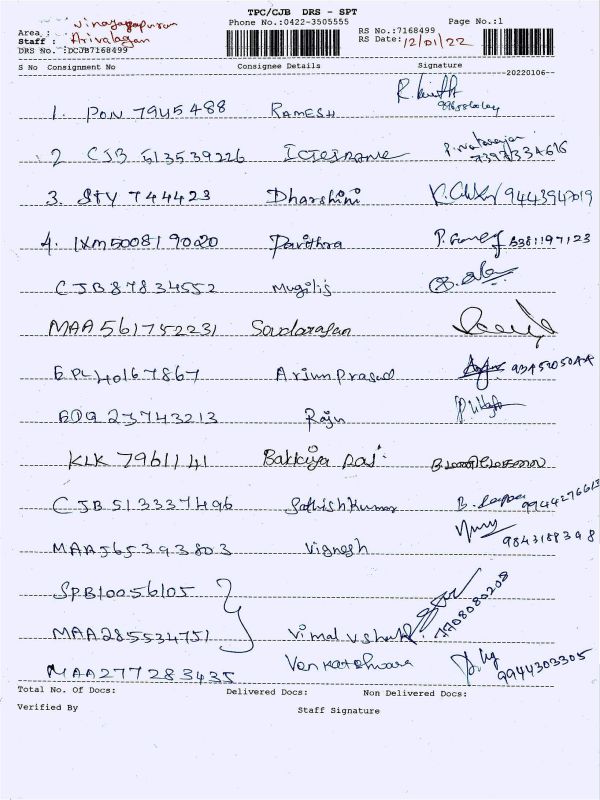 TPC/CJB DRS - SPT
Phone No.:0422-3505555 Page No.:1
Area : Vinayagapuram
Staff : Arivalagan
DRS No. :DCJB7168499
RS No.:7168499
RS Date: 12/01/22
S No Consignment No Consignee Details Signature
20220106
1. PON 7945488 RAMESH
2 CJB 513539226 P. Natarajan
3. STY 744423 Dharshini 9443947019
4. IXM500819020 Pavithra 6381197123
CJB87834552 Mugilis
MAA 561752231 Soudarajan
EPL40167867 Arjun Prasad
BDQ 23743213 Raju
KLK 7961141 Bakkiya Raj
CJB513337496 Sathishkumar 9944276613
MAA565393803 Vignesh 9843188398
SPB10056105
MAA285534751 Vimal 7708080208
MAA277283435 Venkateshwara 9944303305
Total No. Of Docs: Delivered Docs: Non Delivered Docs:
Verified By Staff Signature